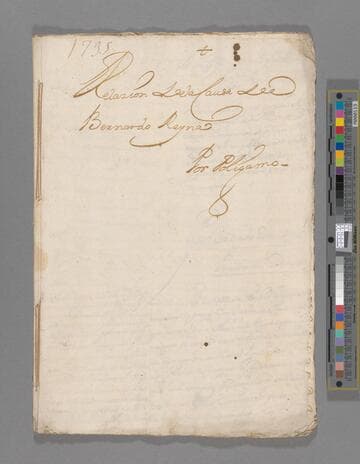 1735
Relazion de la Causa de
Bernardo Reyna
Por Poligamo